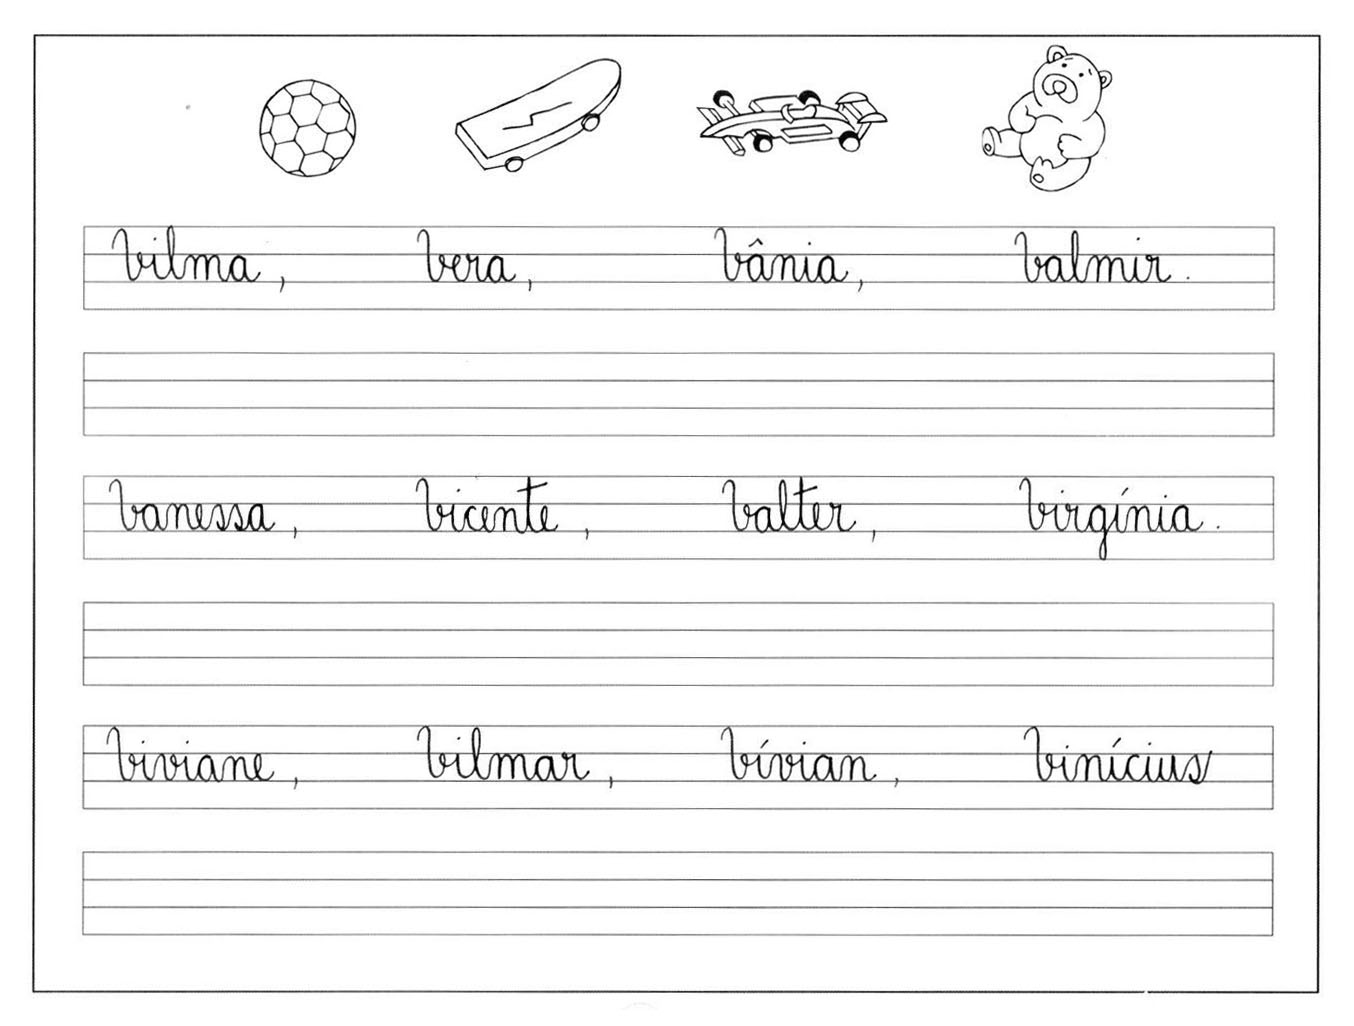 Vilma, Vera, Vânia, Valmir.
Vanessa, Vicente, Valter, Virgínia.
Viviane, Vilmar, Vívian, Vinícius